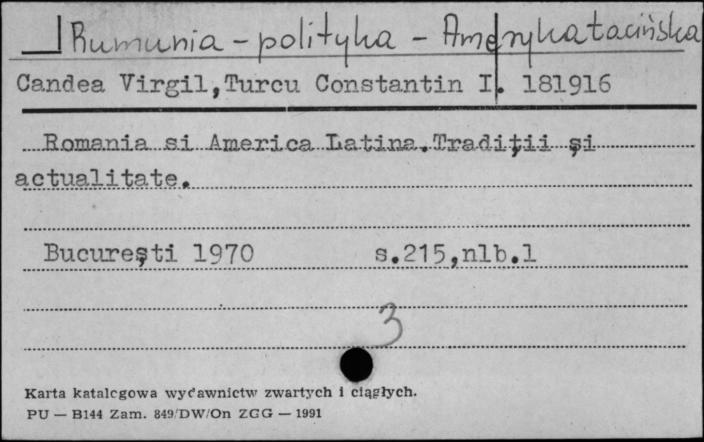 Rumunia - polityka - Ameryka Łacińska
Candea Virgil,Turcu Constantin I. 181916
Romania si America Latina.Tradiţii şi
actualitate.
Bucureşti 1970 s.215,nlb.1
3
Karta katalogowa wydawnictw zwartych i ciągłych.
PU — B144 Zam. 849/DW/On ZGG — 1991